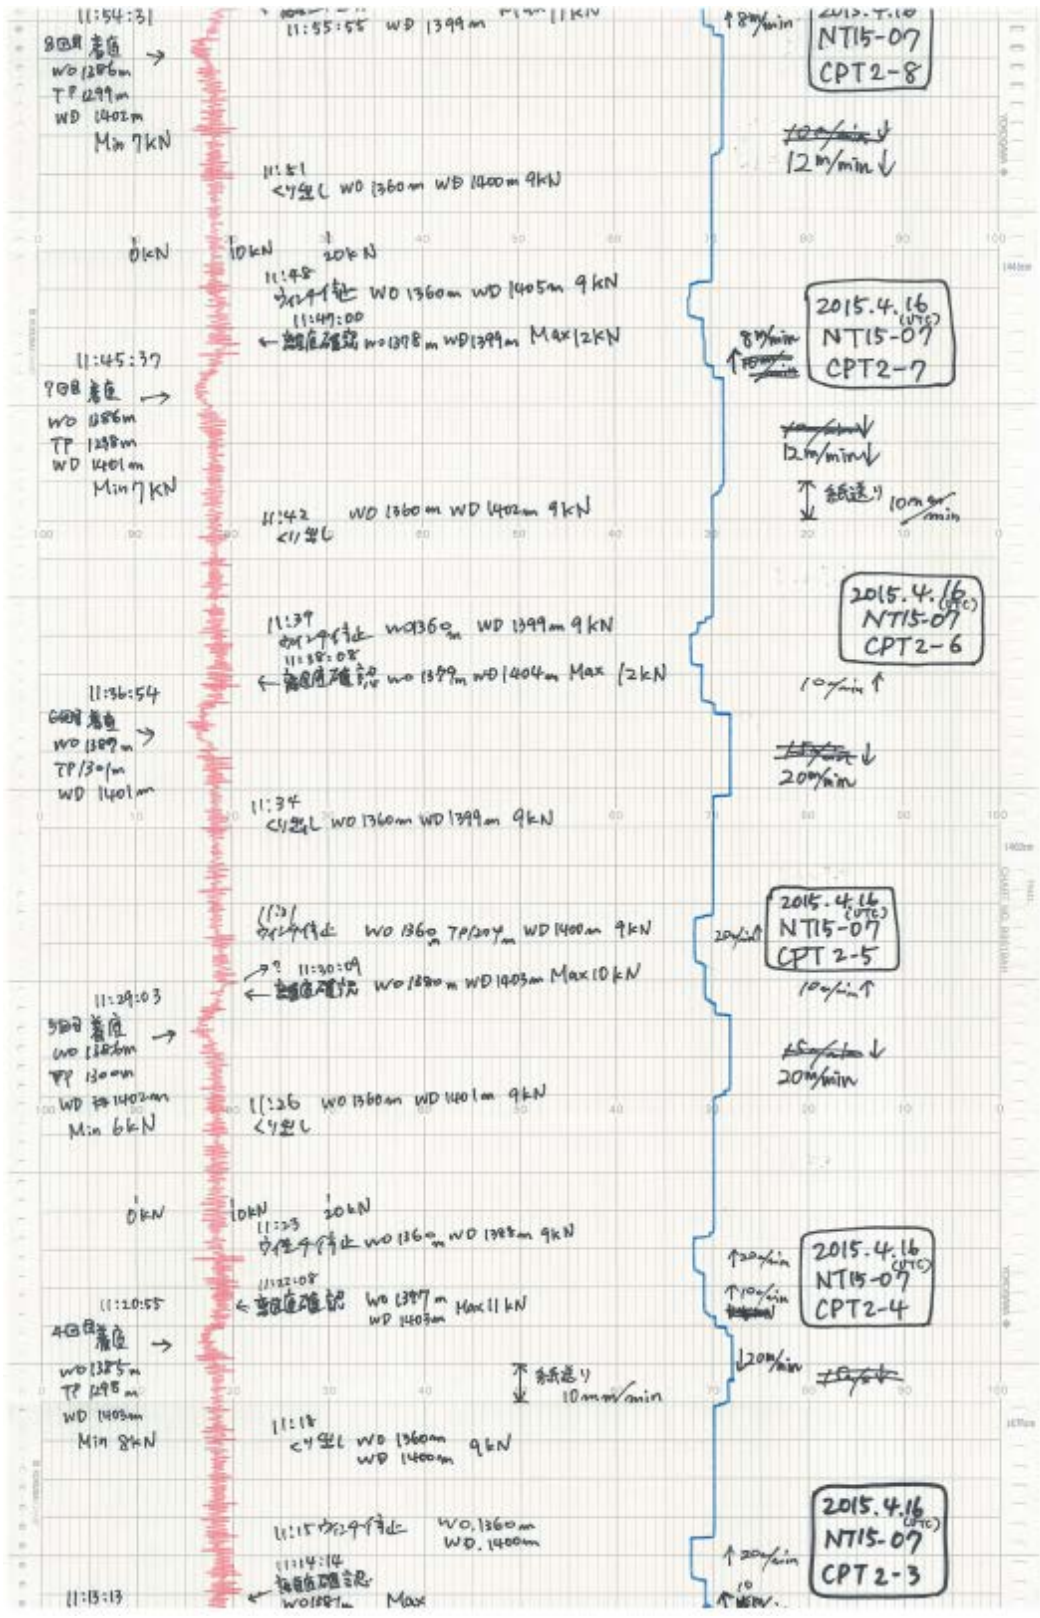 11:54:31
8回目 着底
WO 1386m
TP 1299m
WD 1402m
Min 7kN
11:55:55 WD 1399m
↑8m/min
2015.4.16
NT15-07
CPT2-8
12m/min↓
11:51
くり出し WO 1360m WD 1400m 9kN
0kN 10kN 20kN
11:48
ウィンチ停止 WO 1360m WD 1405m 9kN
11:47:00
← 離底確認 WO 1378m WD 1399m Max 12kN
8m/min
2015.4.16
(UTC)
NT15-07
CPT2-7
11:45:37
7回目 着底
WO 1386m
TP 1298m
WD 1401m
Min 7kN
12m/min↓
紙送り 10mm/min
11:42 WO 1360m WD 1402m 9kN
くり出し
100 90 80 60 50 40 30 20 10 0
2015.4.16
(UTC)
NT15-07
CPT2-6
11:39
ウィンチ停止 WO 1360m WD 1399m 9kN
11:38:08
← 離底確認 WO 1379m WD 1404m Max 12kN
10m/min ↑
11:36:54
6回目 着底
WO 1387m
TP 1301m
WD 1401m
20m/min
11:34
くり出し WO 1360m WD 1399m 9kN
2015.4.16
(UTC)
NT15-07
CPT2-5
11:31
ウィンチ停止 WO 1360m TP 1204m WD 1400m 9kN
20m/min↑
→? 11:30:09
← 離底確認 WO 1380m WD 1403m Max 10kN
10m/min↑
11:29:03
5回目 着底
WO 1386m
TP 1300m
WD 1402m
Min 6kN
20m/min
11:26 WO 1360m WD 1401m 9kN
くり出し
0kN 10kN 20kN
11:23
ウィンチ停止 WO 1360m WD 1398m 9kN
↑20m/min
2015.4.16
(UTC)
NT15-07
CPT2-4
11:22:08
← 離底確認 WO 1377m Max 11kN
WD 1403m
↑10m/min
11:20:55
4回目 着底
WO 1385m
TP 1298m
WD 1403m
Min 8kN
↓20m/min
紙送り
10mm/min
11:18
くり出し WO 1360m 9kN
WD 1400m
2015.4.16
(UTC)
NT15-07
CPT2-3
11:15 ウィンチ停止 WO.1360m
WD.1400m
↑20m/min
11:14:14
離底確認
Max
11:13:13